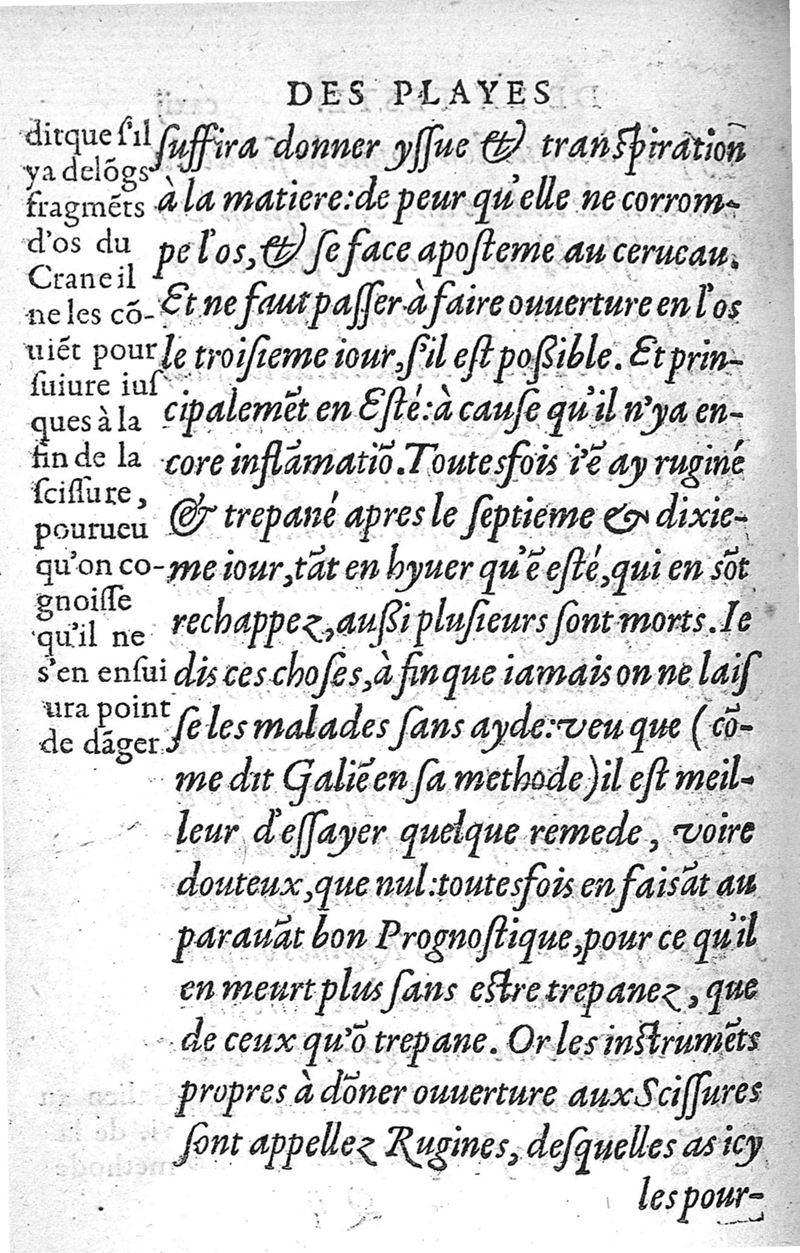 DES PLAYES
dit que ſ'il
y a de lõgs
fragmẽts
d'os du
Crane il
ne les cõ-
uiẽt pour
ſuiure iuſ
ques à la
fin de la
ſciſſure,
pourueu
qu'on co-
gnoiſſe
qu'il ne
s'en enſui
ura point
de dãger.
ſuffira donner yſſue & tranſpiration
à la matiere: de peur qu'elle ne corrom-
pe l'os, & ſe face apoſteme au cerueau.
Et ne faut paſſer à faire ouuerture en l'os
le troiſieme iour, ſ'il eſt poßible. Et prin-
cipalemẽt en Eſté: à cauſe qu'il n'y a en-
core inflãmatiõ. Toutesfois i'ẽ ay ruginé
& trepané apres le ſeptieme & dixie-
me iour, tãt en hyuer qu'ẽ eſté, qui en sõt
rechappez, außi pluſieurs ſont morts. Ie
dis ces choſes, à fin que iamais on ne laiſ
ſe les malades ſans ayde: veu que (cõ-
me dit Galiẽ en ſa methode) il eſt meil-
leur d'eſſayer quelque remede, voire
douteux, que nul: toutesfois en faisãt au
parauãt bon Prognoſtique, pour ce qu'il
en meurt plus ſans eſtre trepanez, que
de ceux qu'õ trepane. Or les inſtrumẽts
propres à dõner ouuerture aux Sciſſures
ſont appellez Rugines, deſquelles as icy
les pour-